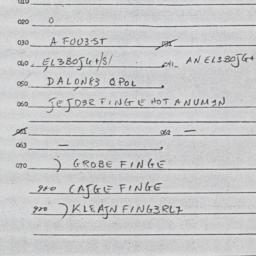 020 0
030 A FOU3-ST
040 EL380JG+/S/ 041 AN EL380JG+
050 DALON83 OPOL
060 JEJD3R FINGE HOT A NUM3N
062 —
063 —
070 ) GROBE FINGE
980 CAJGE FINGE
990 ) KLEAJN FING3RL7